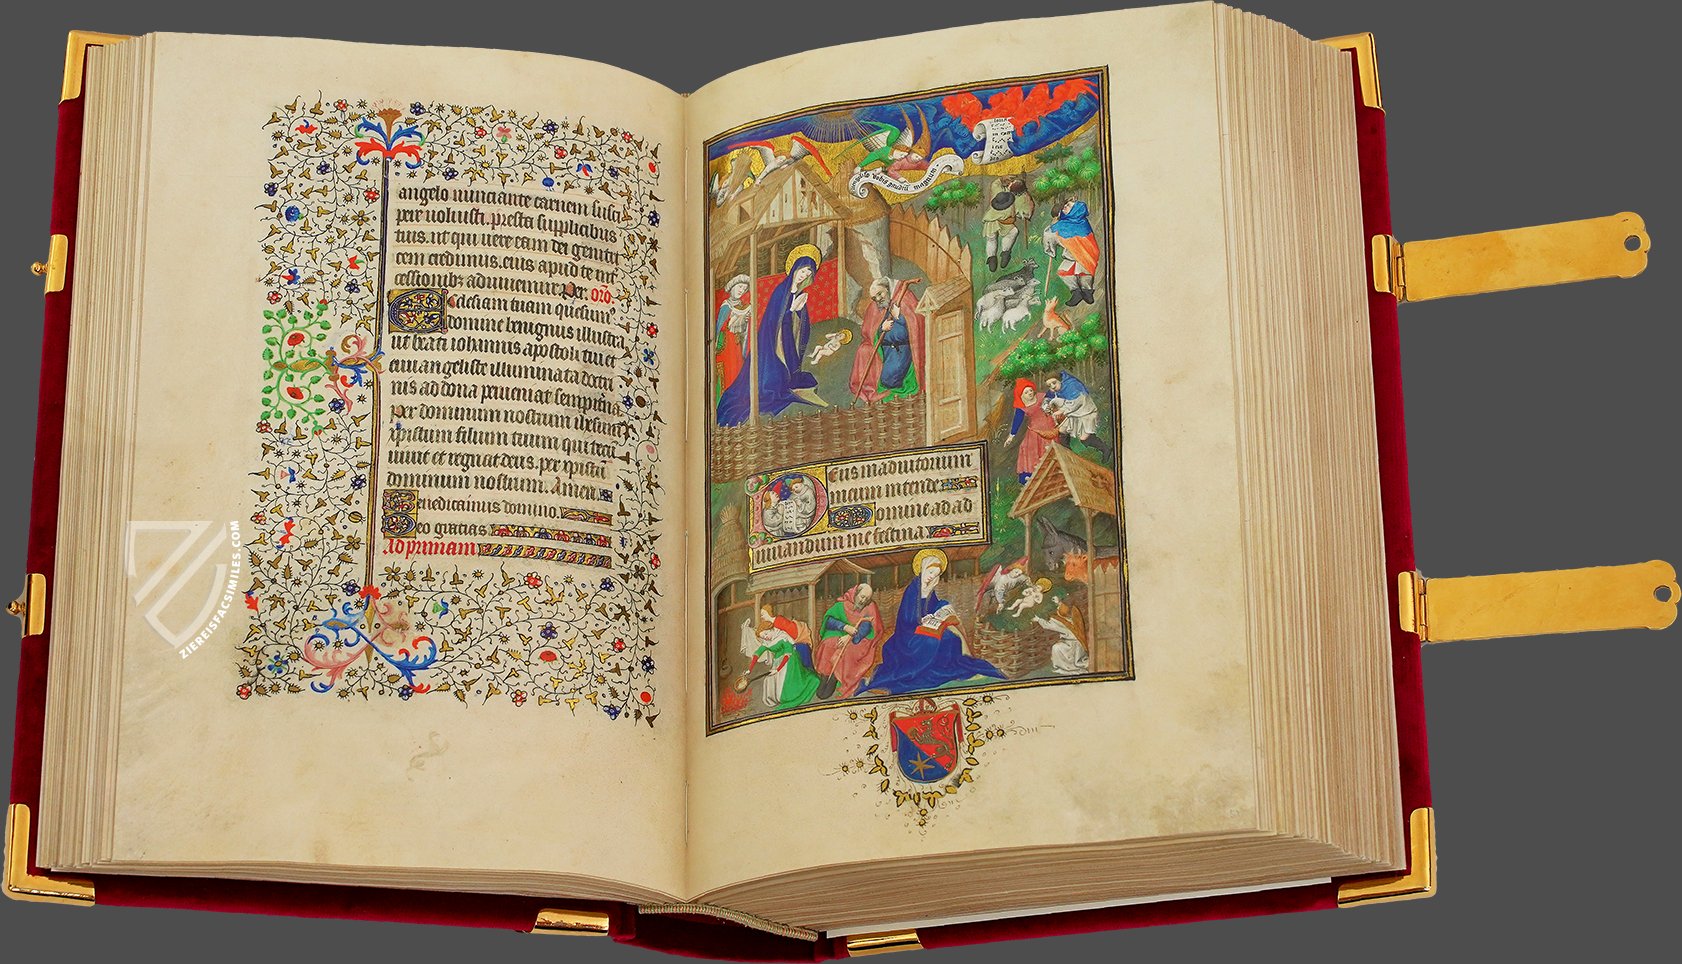 angelo nunciante carnem susci
pere voluisti. presta supplicibus
tuis. ut qui vere eam dei genitri
cem credimus. eius apud te int
cessionibz adiuvemur. Per. oro.
Ecclesiam tuam quesum
domine benignus illustra
ut beati iohannis apostoli tui et
euvangeliste illuminata doctri
nis ad dona perveniat sempitna.
Per dominum nostrum ihesum
xpistum filium tuum qui tecū
vivit et regnat deus. per xpistū
dominum nostrum. Amen.
Benedicamus domino.
Deo gracias
Ad primam
vobis gaudiū magnum
Deus in adiutorium
meum intende
Domine ad ad
iuvandum me festina
ZIEREISFACSIMILES.COM